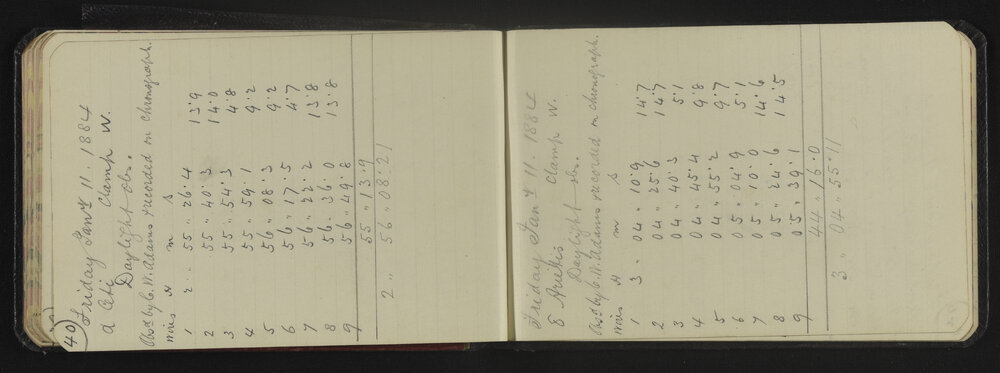 40
Friday Jany 11. 1884
α Ceti Clamp W.
Daylight obs.
Obsd by C. W. Adams & recorded on chronograph.
wires H m s
1 2 " 55 " 26.4 13.9
2 55 " 40.3 14.0
3 55 " 54.3 4.8
4 55 " 59.1 9.2
5 56 " 08.3 9.2
6 56 " 17.5 4.7
7 56 " 22.2 13.8
8 56 " 36.0 13.8
9 56 " 49.8
55 " 13.9
2 " 56 " 08.21
Friday Jany 11. 1884
δ Arietis Clamp W.
Daylight obs.
Obsd by C. W. Adams & recorded on chronograph.
wires H m s
1 3 " 04 " 10.9 14.7
2 04 " 25.6 14.7
3 04 " 40.3 5.1
4 04 " 45.4 9.8
5 04 " 55.2 9.7
6 05 " 04.9 5.1
7 05 " 10.0 14.6
8 05 " 24.6 14.5
9 05 " 39.1
44 " 16.0
3 " 04 " 55.11